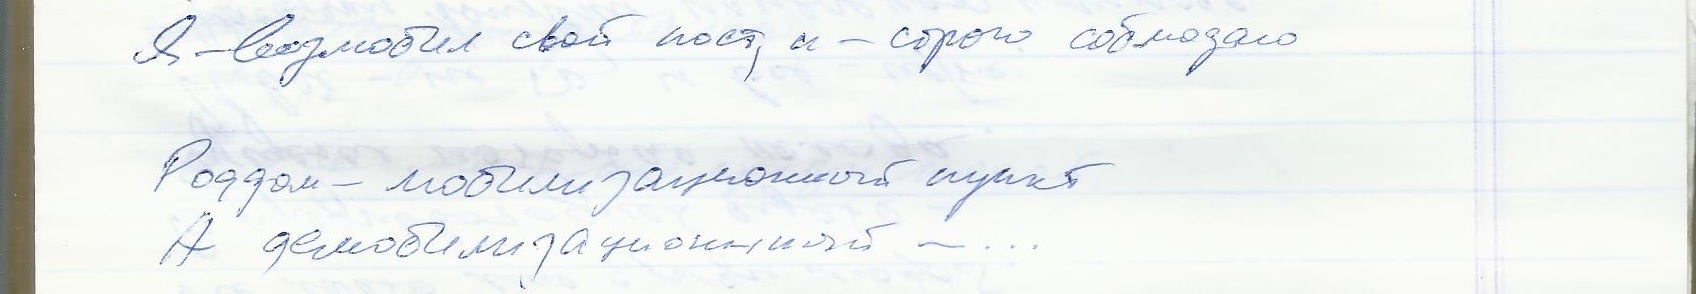 Я – возлюбил свой пост, и – строго соблюдаю
Роддом – мобилизационный пункт
А демобилизационный – ...